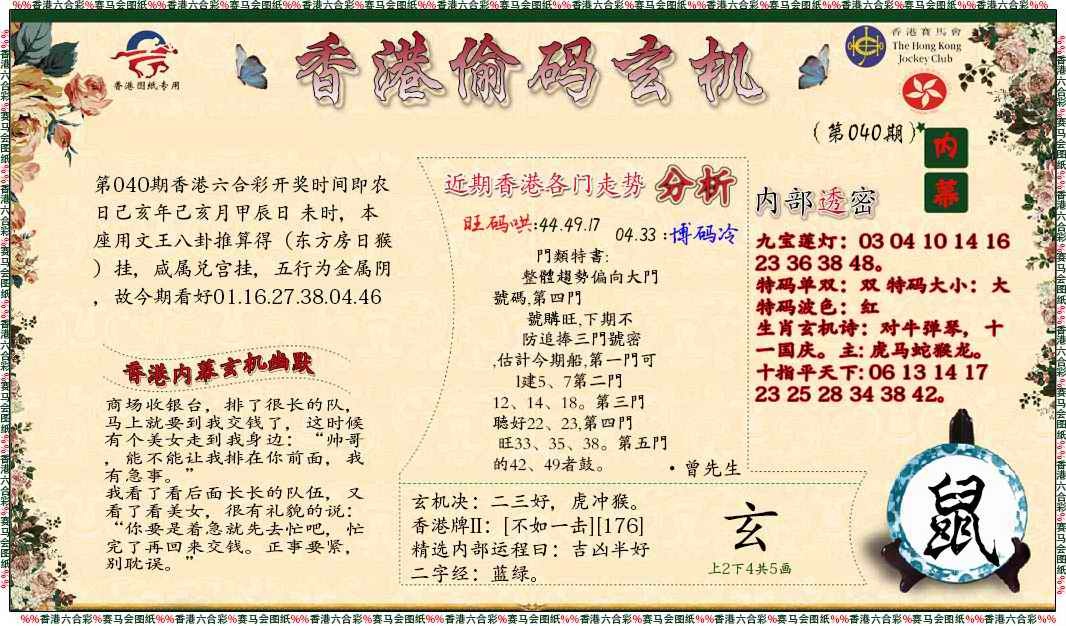 %%香港六合彩%赛马会图纸%%香港六合彩%赛马会图纸%%香港六合彩%赛马会图纸%%香港六合彩%赛马会图纸%%香港六合彩%赛马会图纸%%香港六合彩%赛马会图纸%%香港六合彩%赛马会图纸%%香港六合彩%%
香港图纸专用
香港偷码玄机
香港賽馬會
The Hong Kong
Jockey Club
(第040期)
内
幕
第040期香港六合彩开奖时间即农
日己亥年己亥月甲辰日 未时，本
座用文王八卦推算得（东方房日猴
）挂，咸属兑宫挂，五行为金属阴
，故今期看好01.16.27.38.04.46
香港内幕玄机幽默
商场收银台，排了很长的队，
马上就要到我交钱了，这时候
有个美女走到我身边：“帅哥
，能不能让我排在你前面，我
有急事。”
我看了看后面长长的队伍，又
看了看美女，很有礼貌的说：
“你要是着急就先去忙吧，忙
完了再回来交钱。正事要紧，
别耽误。”
近期香港各门走势 分析
旺码哄:44.49.17
04.33 :博码冷
門類特書:
整體趨勢偏向大門
號碼,第四門
號購旺,下期不
防追捧三門號密
,估計今期船,第一門可
1建5、7第二門
12、14、18。第三門
聽好22、23,第四門
旺33、35、38。第五門
的42、49者鼓。
·曾先生
内部透密
九宝莲灯：03 04 10 14 16
23 36 38 48。
特码单双：双 特码大小：大
特码波色：红
生肖玄机诗：对牛弹琴，十
一国庆。主: 虎马蛇猴龙。
十指平天下: 06 13 14 17
23 25 28 34 38 42。
玄机决：二三好，虎冲猴。
香港牌II：[不如一击][176]
精选内部运程曰：吉凶半好
二字经：蓝绿。
玄
上2下4共5画
鼠
%%香港六合彩%赛马会图纸%%香港六合彩%赛马会图纸%%香港六合彩%赛马会图纸%%香港六合彩%赛马会图纸%%香港六合彩%赛马会图纸%%香港六合彩%赛马会图纸%%香港六合彩%赛马会图纸%%香港六合彩%%